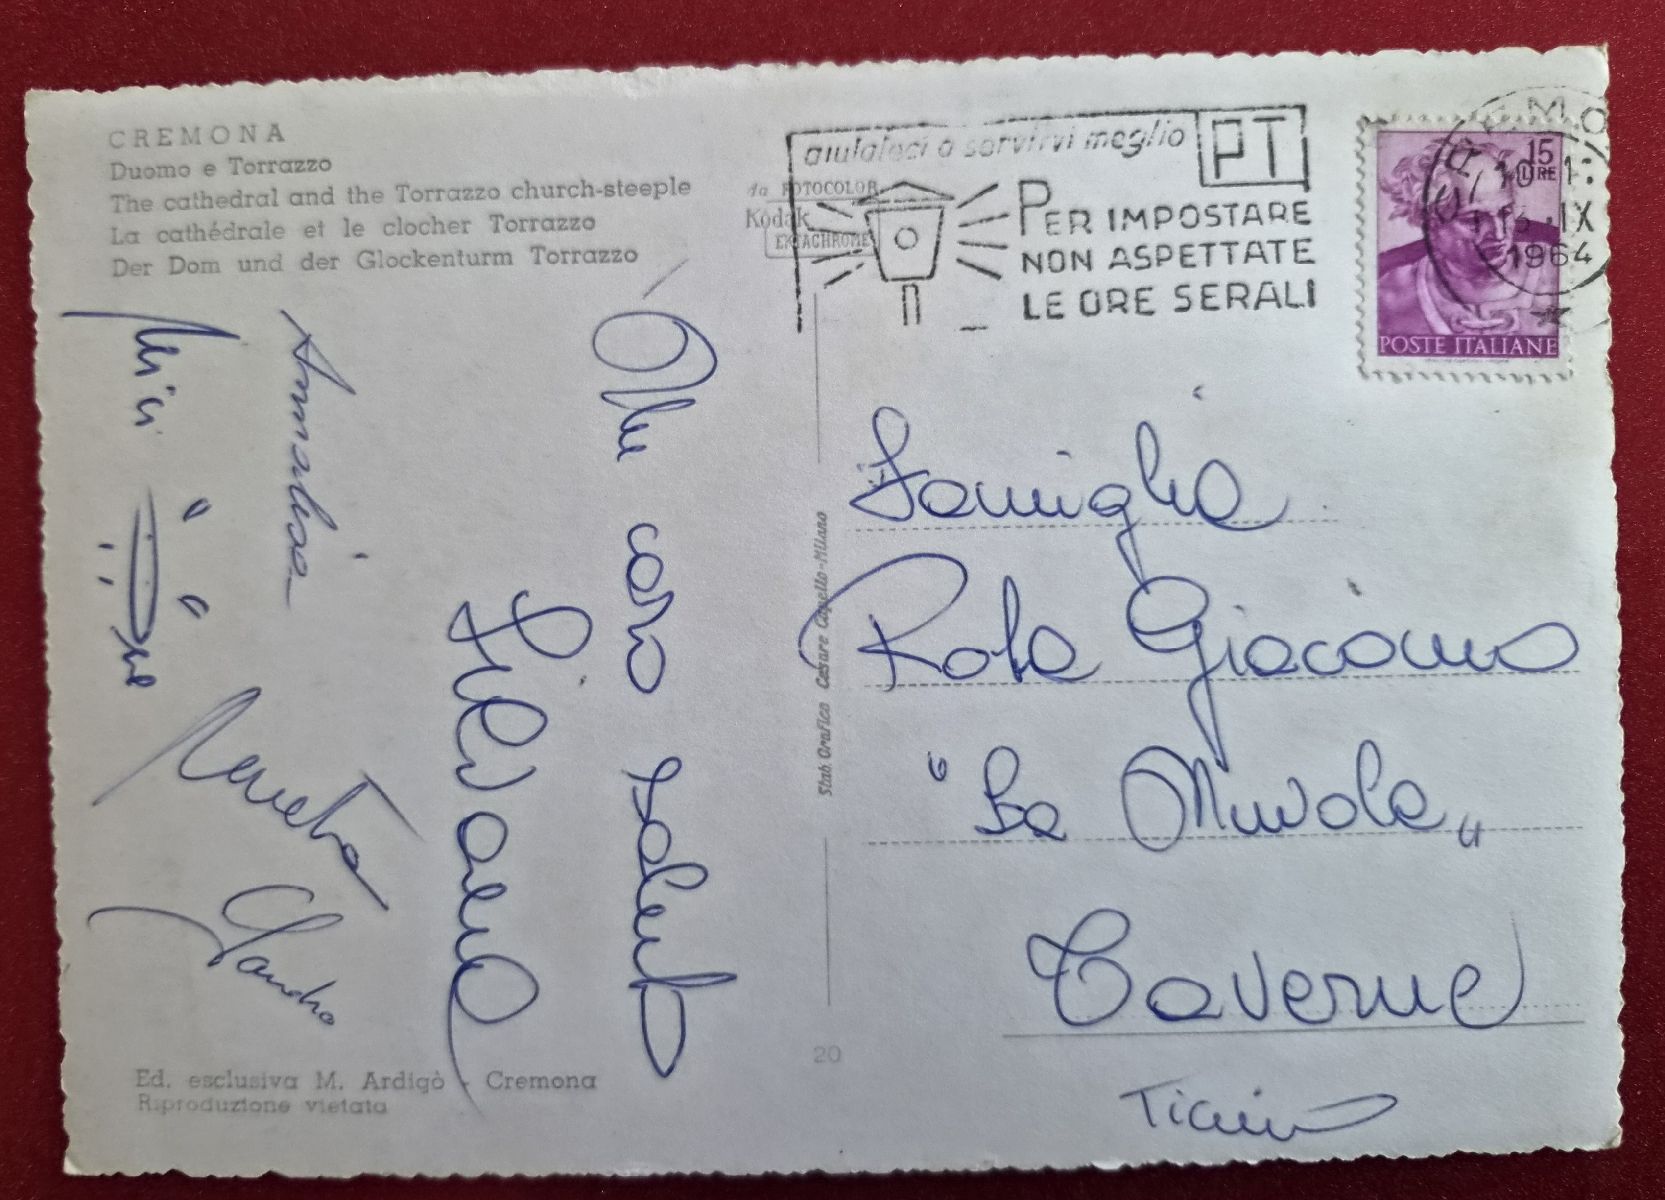 CREMONA
Duomo e Torrazzo
The cathedral and the Torrazzo church-steeple
La cathédrale et le clocher Torrazzo
Der Dom und der Glockenturm Torrazzo
aiutateci a servirvi meglio PT
PER IMPOSTARE
NON ASPETTATE
LE ORE SERALI
FOTOCOLOR
Kodak
EKTACHROME
15
LIRE
10
IX
1964
POSTE ITALIANE
Un caro saluto
Silvana
Annalisa
Mici
Sandro
Famiglia
Rota Giacomo
"La Nuvola"
Taverne
Ticino
Stab. Grafico Cesare Capello-Milano
20
Ed. esclusiva M. Ardigò - Cremona
Riproduzione vietata